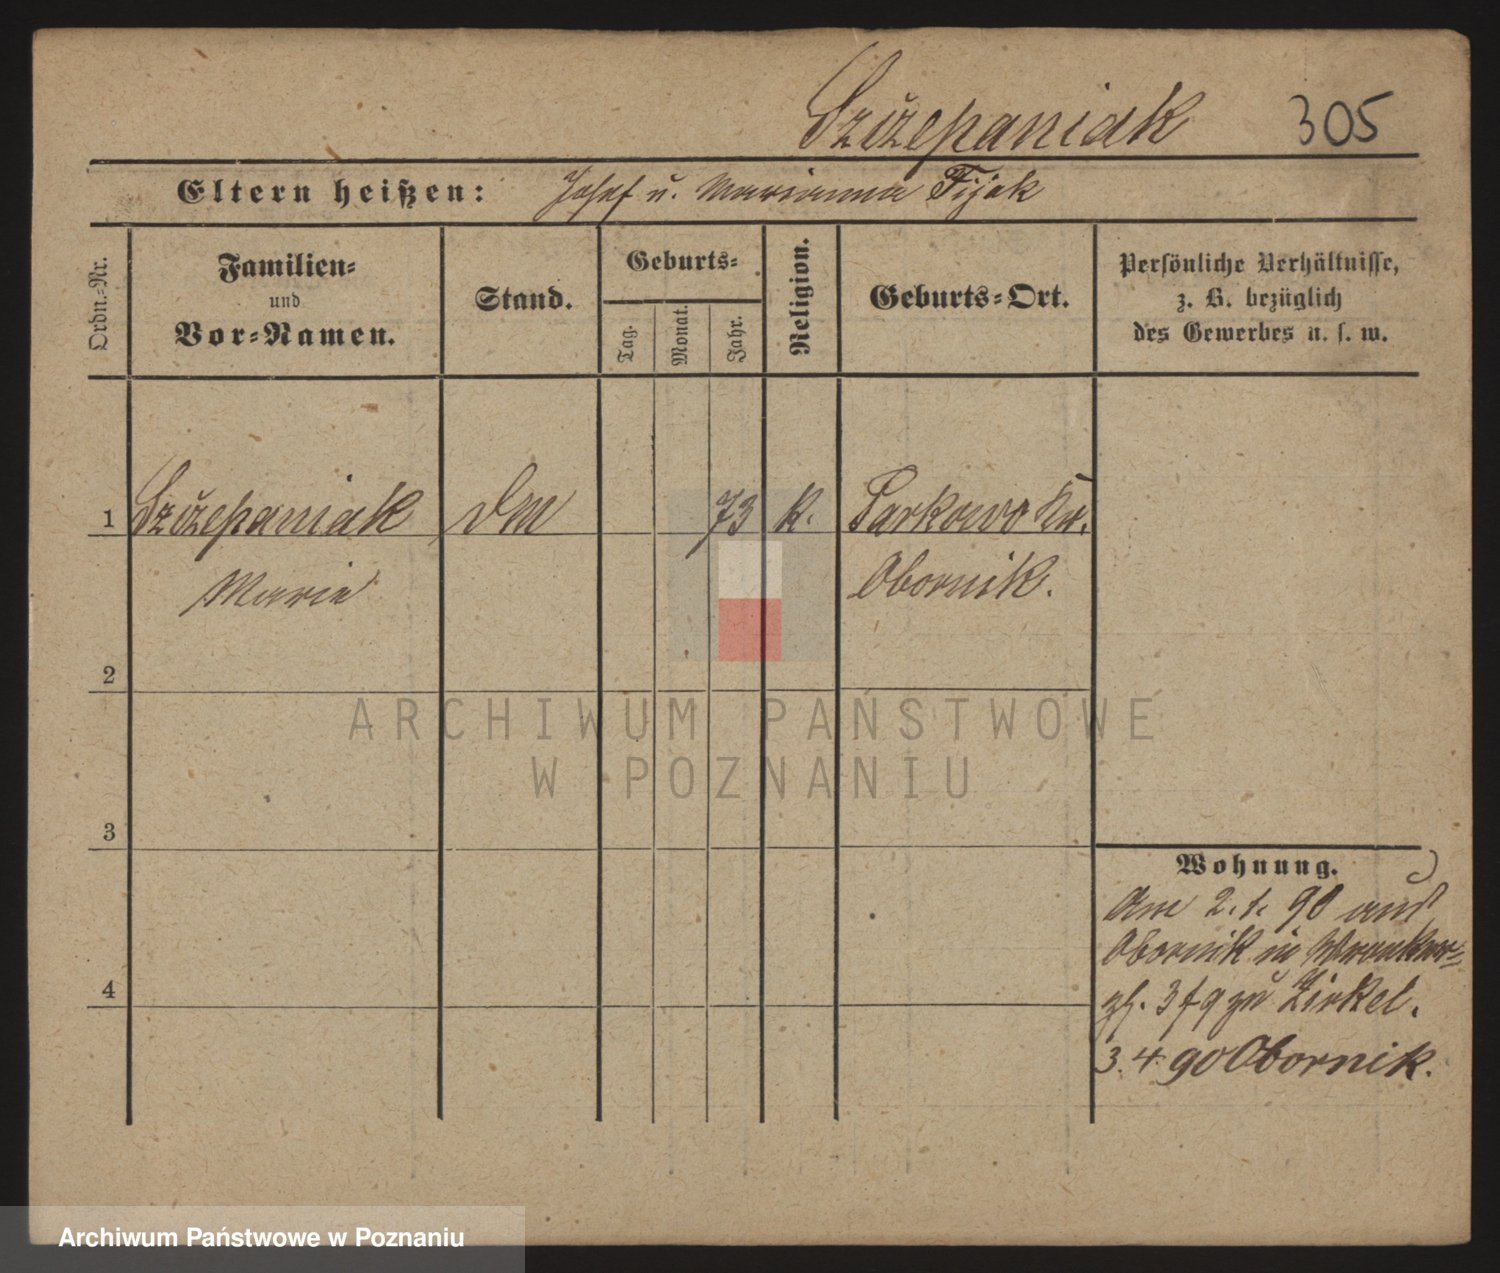 Szczepaniak 305
Eltern heißen: Josef u. Marianna Fijak
Ordn.-Nr.
Familien-
und
Vor-Namen.
Stand.
Geburts-
Tag.
Monat.
Jahr.
Religion.
Geburts-Ort.
Persönliche Verhältnisse,
z. B. bezüglich
des Gewerbes u. s. w.
1 Szczepaniak Dm 73 k. Parkowo Kr.
Marie Obornik.
2
3
4
Wohnung.
Am 2. 1. 90 aus
Obornik in Wronker-
pl. 3 zu Zirkel.
3. 4. 90 Obornik.
ARCHIWUM PAŃSTWOWE
W POZNANIU
Archiwum Państwowe w Poznaniu